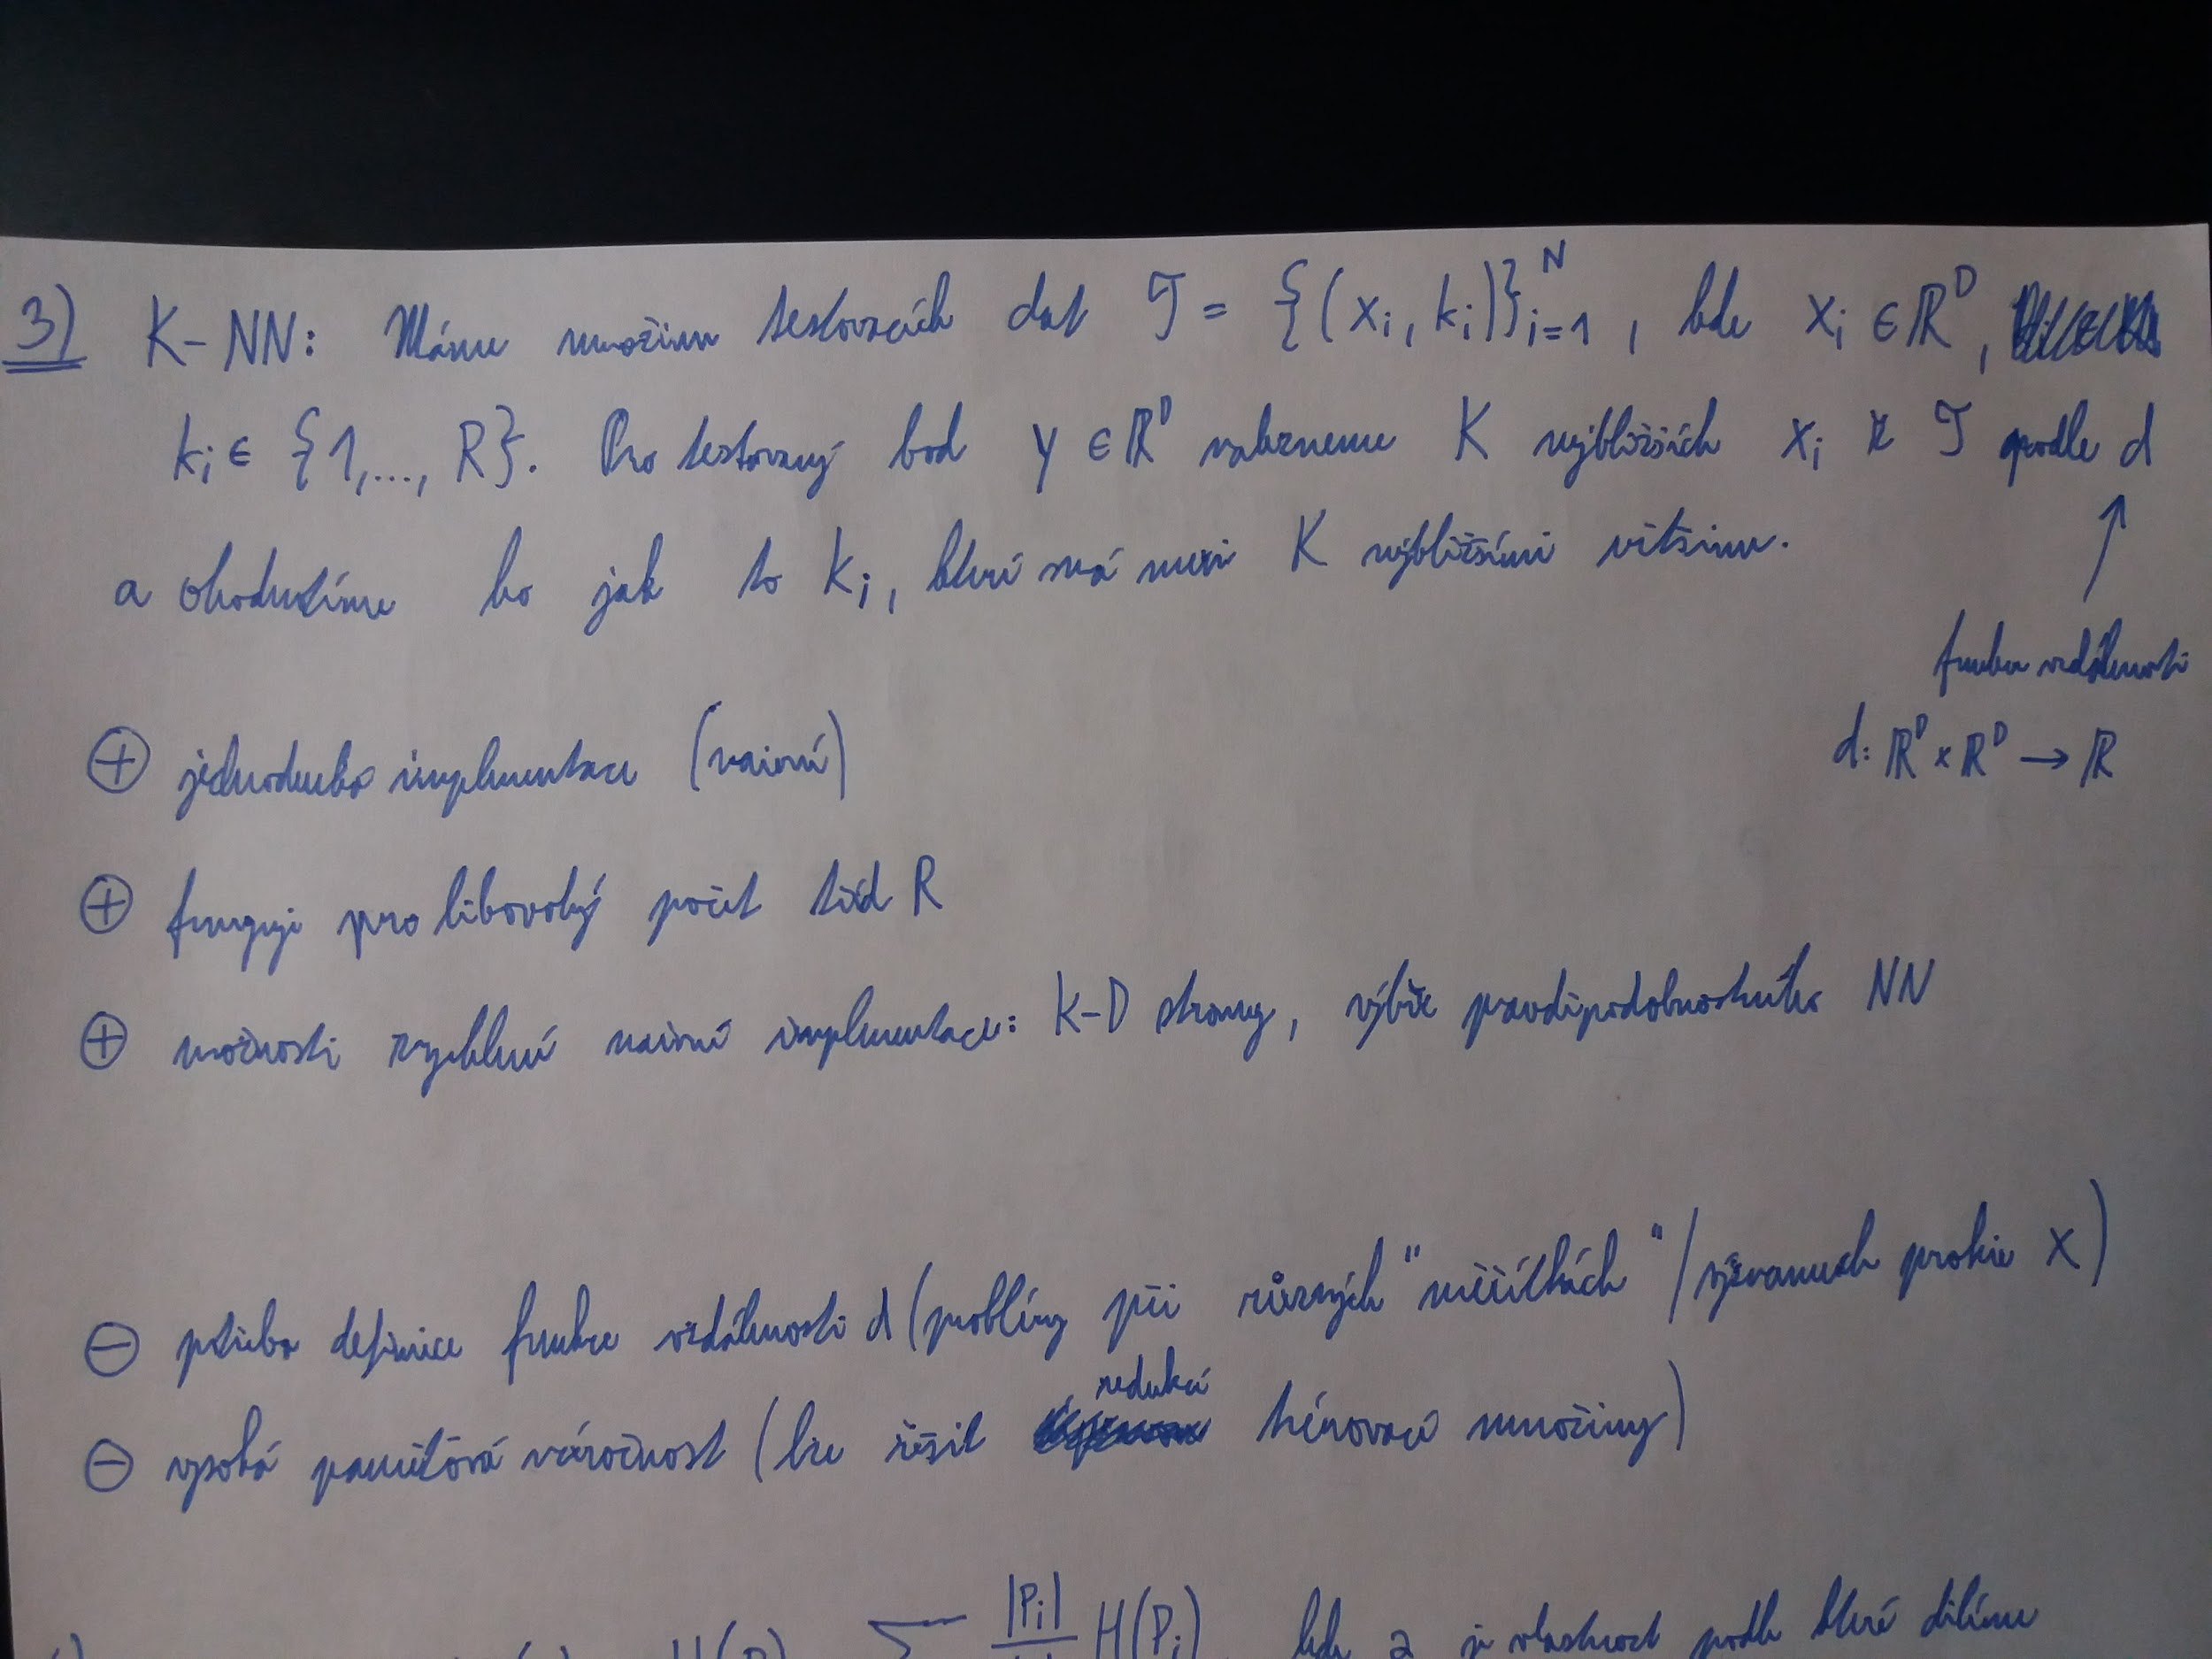 3) K-NN: Máme množinu testovacích dat T = {(x_i, k_i)}_{i=1}^N, kde x_i ∈ ℝ^D,
k_i ∈ {1,..., R}. Pro testovaný bod y ∈ ℝ^D nalezneme K nejbližších x_i z T podle d
a ohodnotíme ho jak to k_i, které má mezi K nejbližšími většinu.
↑
funkce vzdálenosti
d: ℝ^D × ℝ^D → ℝ
⊕ jednoduchá implementace (naivní)
⊕ funguje pro libovolný počet tříd R
⊕ možnosti zrychlení naivní implementace: K-D stromy, výběr pravděpodobnostního NN
⊖ potřeba definice funkce vzdálenosti d (problémy při různých "měřítkách" / významech prvků x)
⊖ vysoká paměťová náročnost (lze řešit redukcí trénovací množiny)
∑ |P_i| H(P_i), kde a je vlastnost podle které dělíme